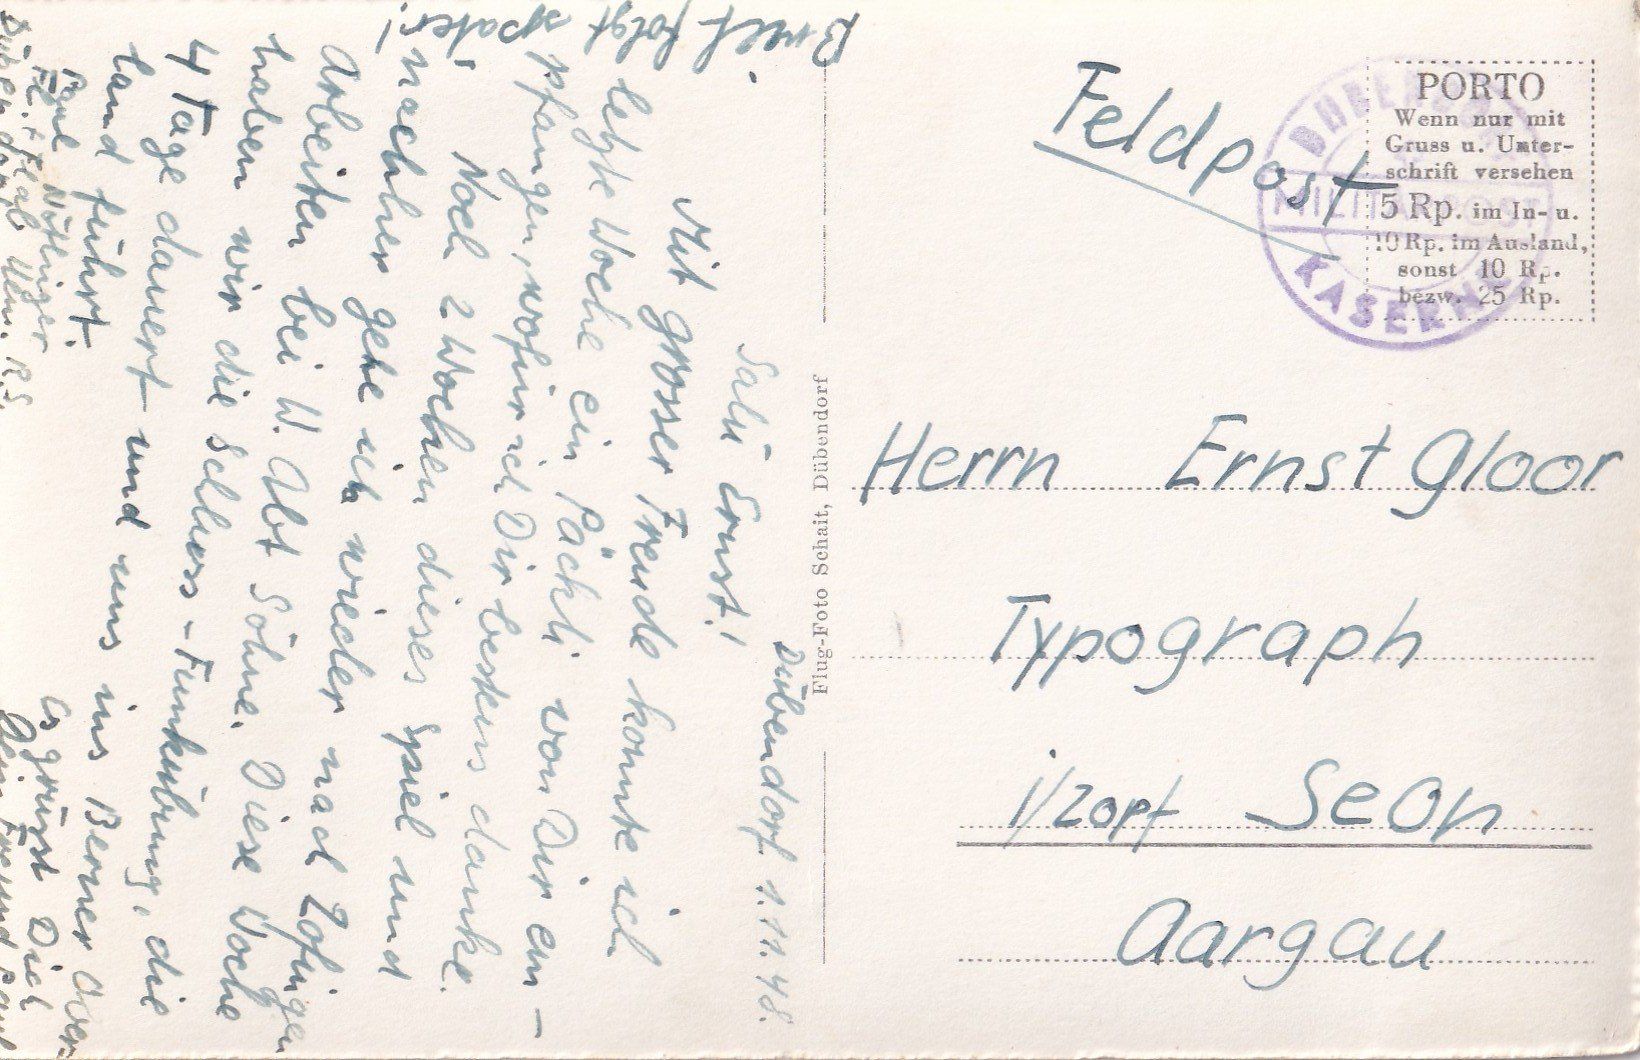 Feldpost
PORTO
Wenn nur mit
Gruss u. Unter-
schrift versehen
5 Rp. im In- u.
10 Rp. im Ausland,
sonst 10 Rp.
bezw. 25 Rp.
DÜBENDORF
MILITÄRPOST
KASERNE
Herrn Ernst Gloor
Typograph
i/Zopf Seon
Aargau
Flug-Foto Schait, Dübendorf
Dübendorf. 1.11.48.
Salü Ernst!
Mit grosser Freude konnte ich
letzte Woche ein Päckli von Dir em-
pfangen, wofür ich Dir bestens danke.
Noch 2 Wochen dieses Spiel und
nachher gehe ich wieder nach Zofingen
arbeiten bei W. Abt Söhne. Diese Woche
haben wir die Schluss-Funkübung, die
4 Tage dauert und uns ins Berner Ober-
land führt.
Es grüsst Dich
Dein Freund Paul
Paul
Fl. + Flab. Uem. R.S.
Dübendorf
Brief folgt später!